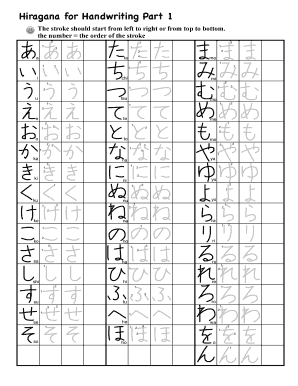 Hiragana for Handwriting Part 1
The stroke should start from left to right or from top to bottom.
the number = the order of the stroke
あ あ あ た た た ま ま ま
い い い ち ち ち み み み
う う う つ つ つ む む む
え え え て て て め め め
お お お と と と も も も
か か か な な な や や や
き き き に に に ゆ ゆ ゆ
く く く ぬ ぬ ぬ よ よ よ
け け け ね ね ね ら ら ら
こ こ こ の の の り り り
さ さ さ は は は る る る
し し し ひ ひ ひ れ れ れ
す す す ふ ふ ふ ろ ろ ろ
せ せ せ へ へ へ わ わ わ
そ そ そ ほ ほ ほ を を を
ん ん ん